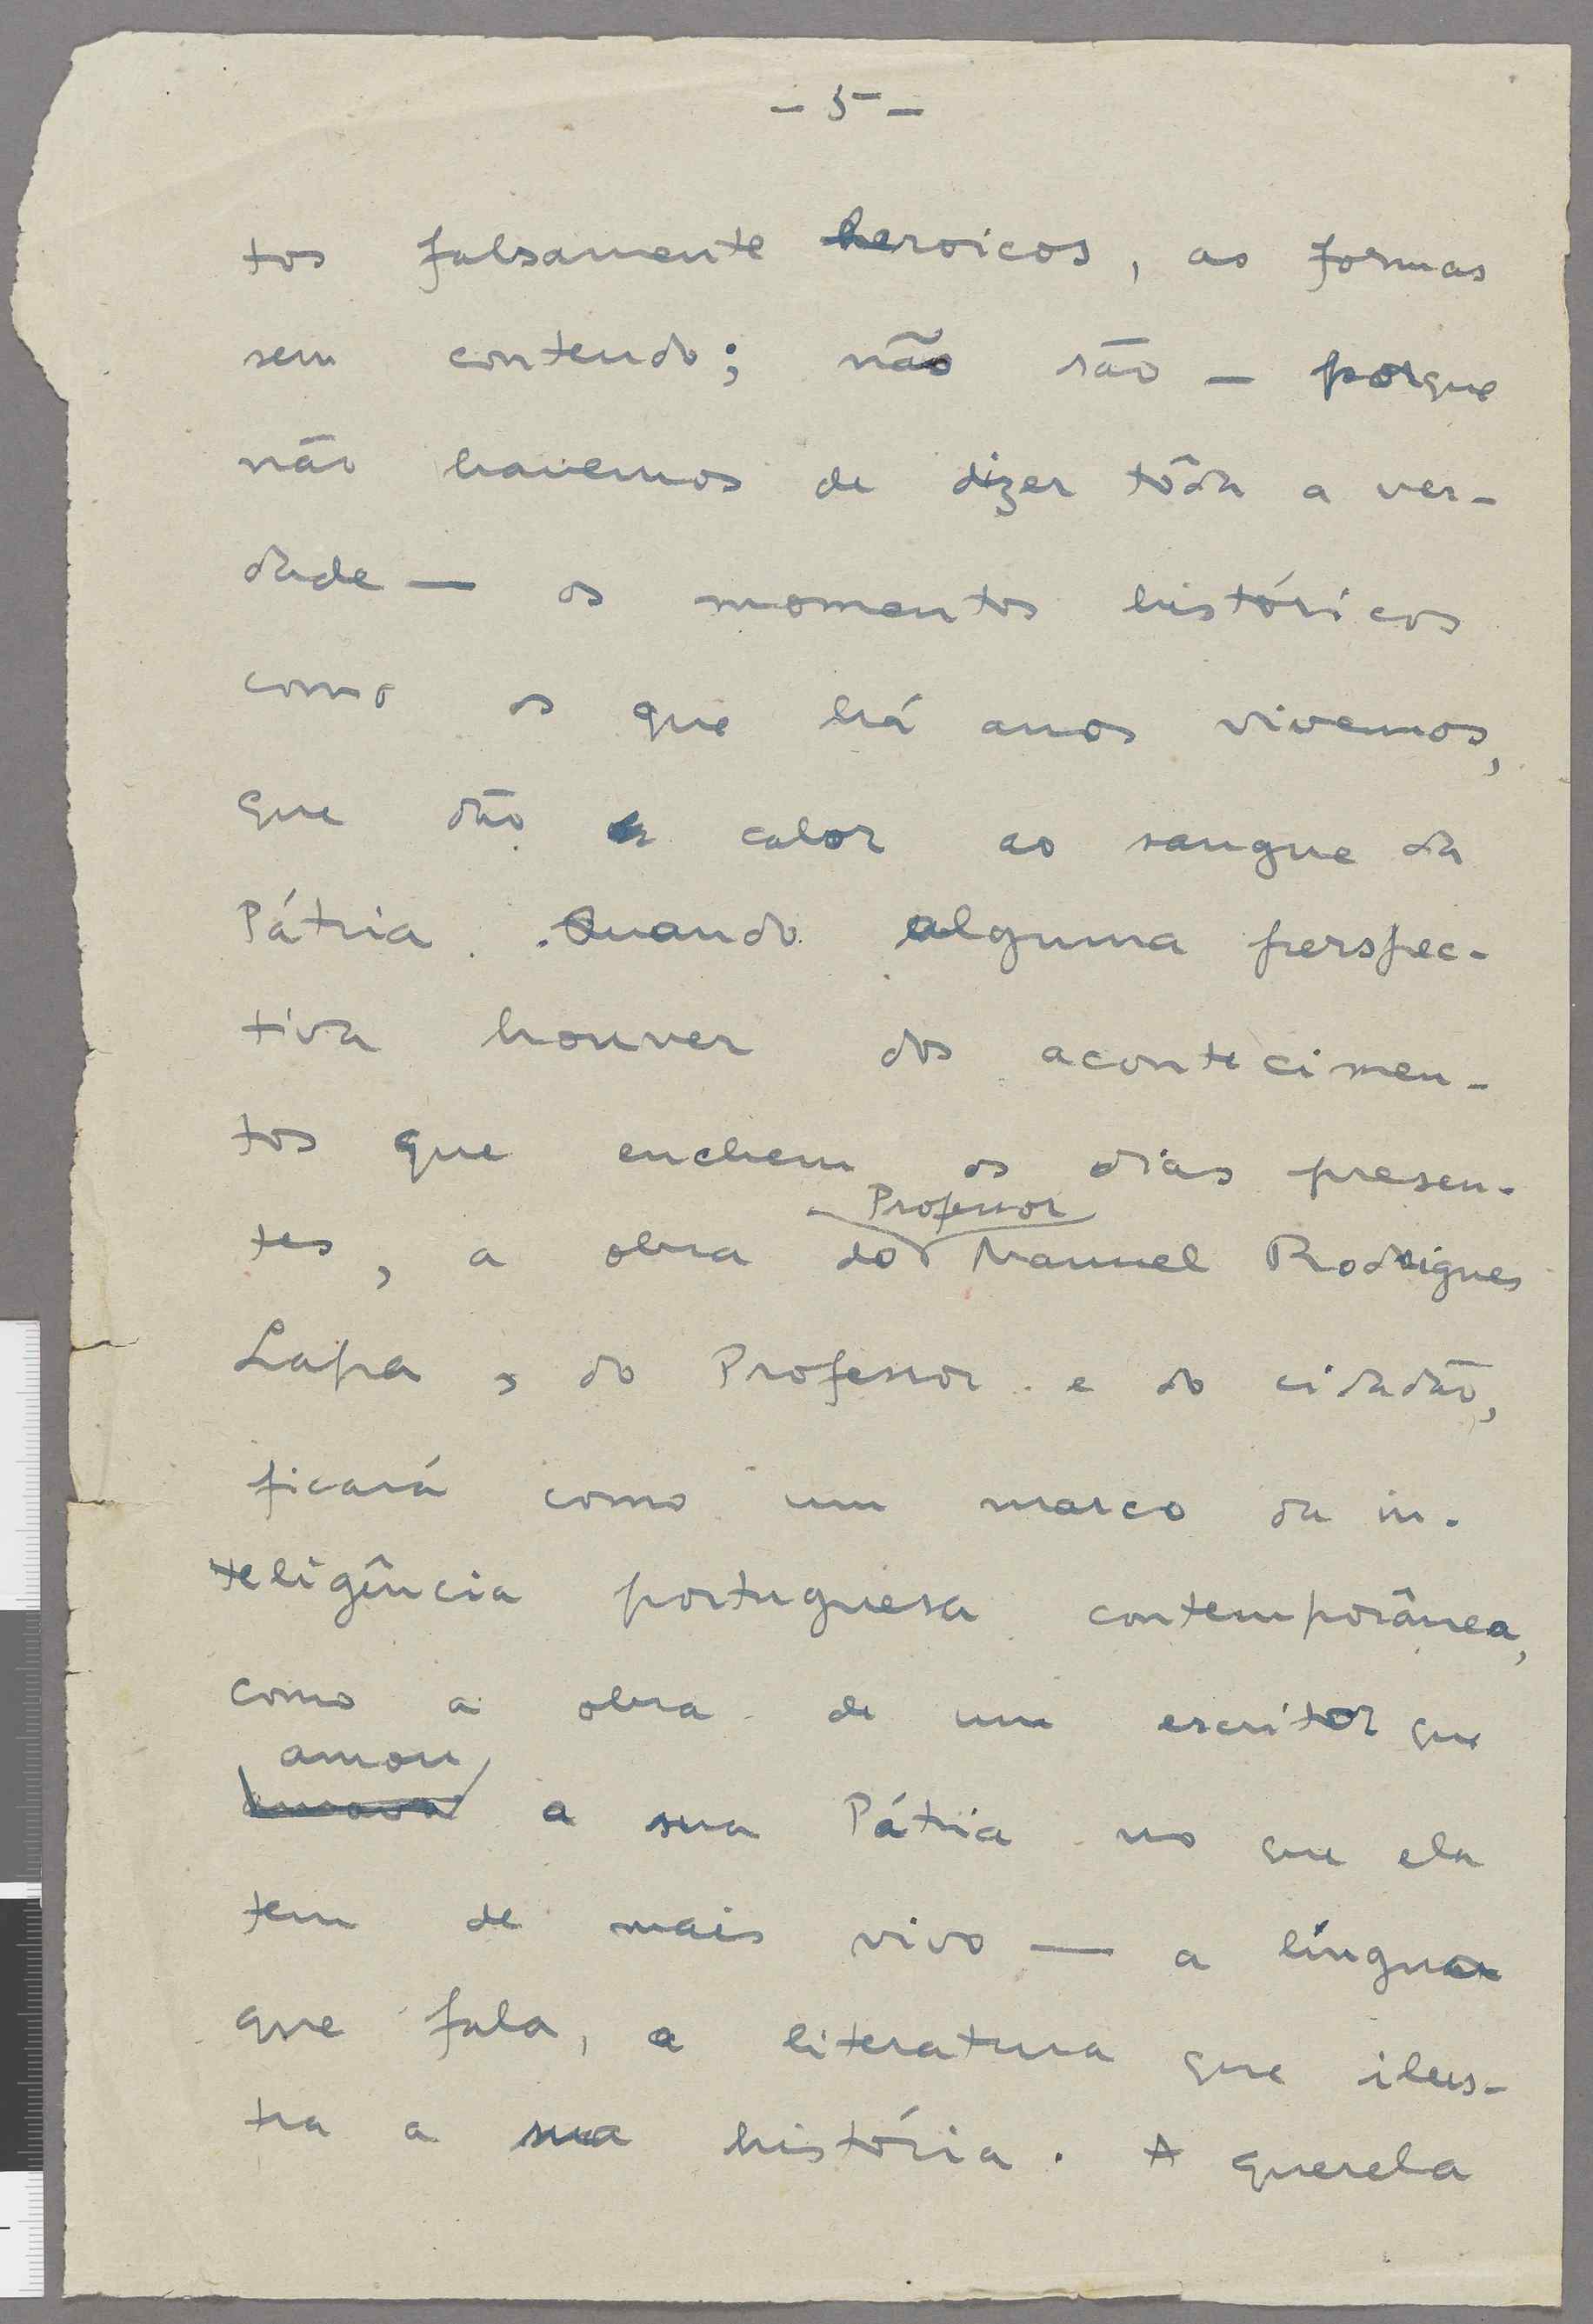 - 5 -
tos falsamente heroicos, as formas
sem contendo; não são - porque
não havemos de dizer tôda a ver-
dade — os momentos históricos
como os que há anos vivemos,
que dão calor ao sangue da
Pátria. Quando alguma perspec-
tiva houver dos acontecimen-
tos que enchem os dias presen-
Professor
tes, a obra do Manuel Rodrigues
Lapa, do Professor e do cidadão,
ficará como um marco da in-
teligência portuguesa contemporânea,
como a obra de um escritor que
amou
amava a sua Pátria no que ela
tem de mais vivo — a língua
que fala, a literatura que ilus-
tra a sua história. A querela